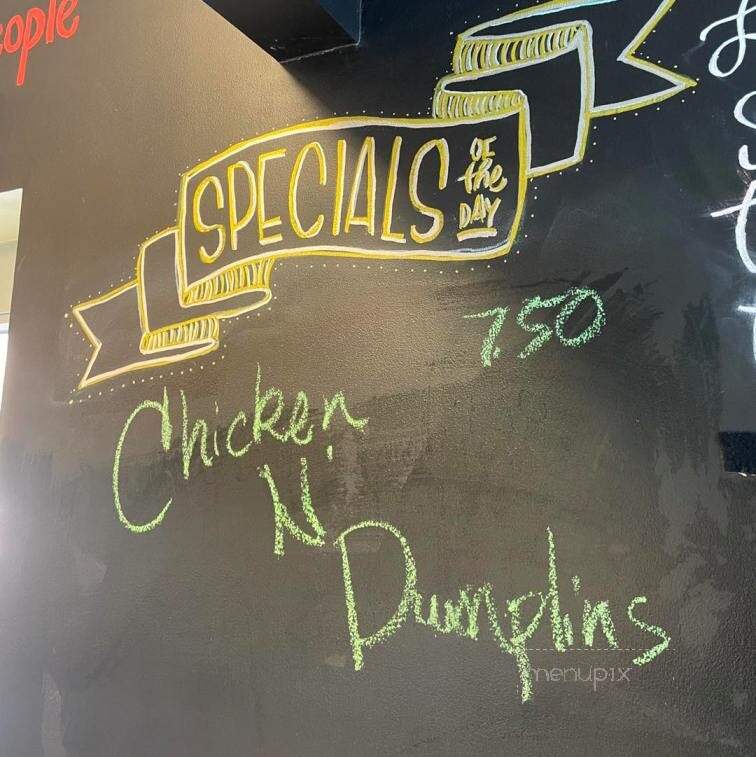 SPECIALS OF the DAY
7.50
Chicken
N'
Dumplins
menupix